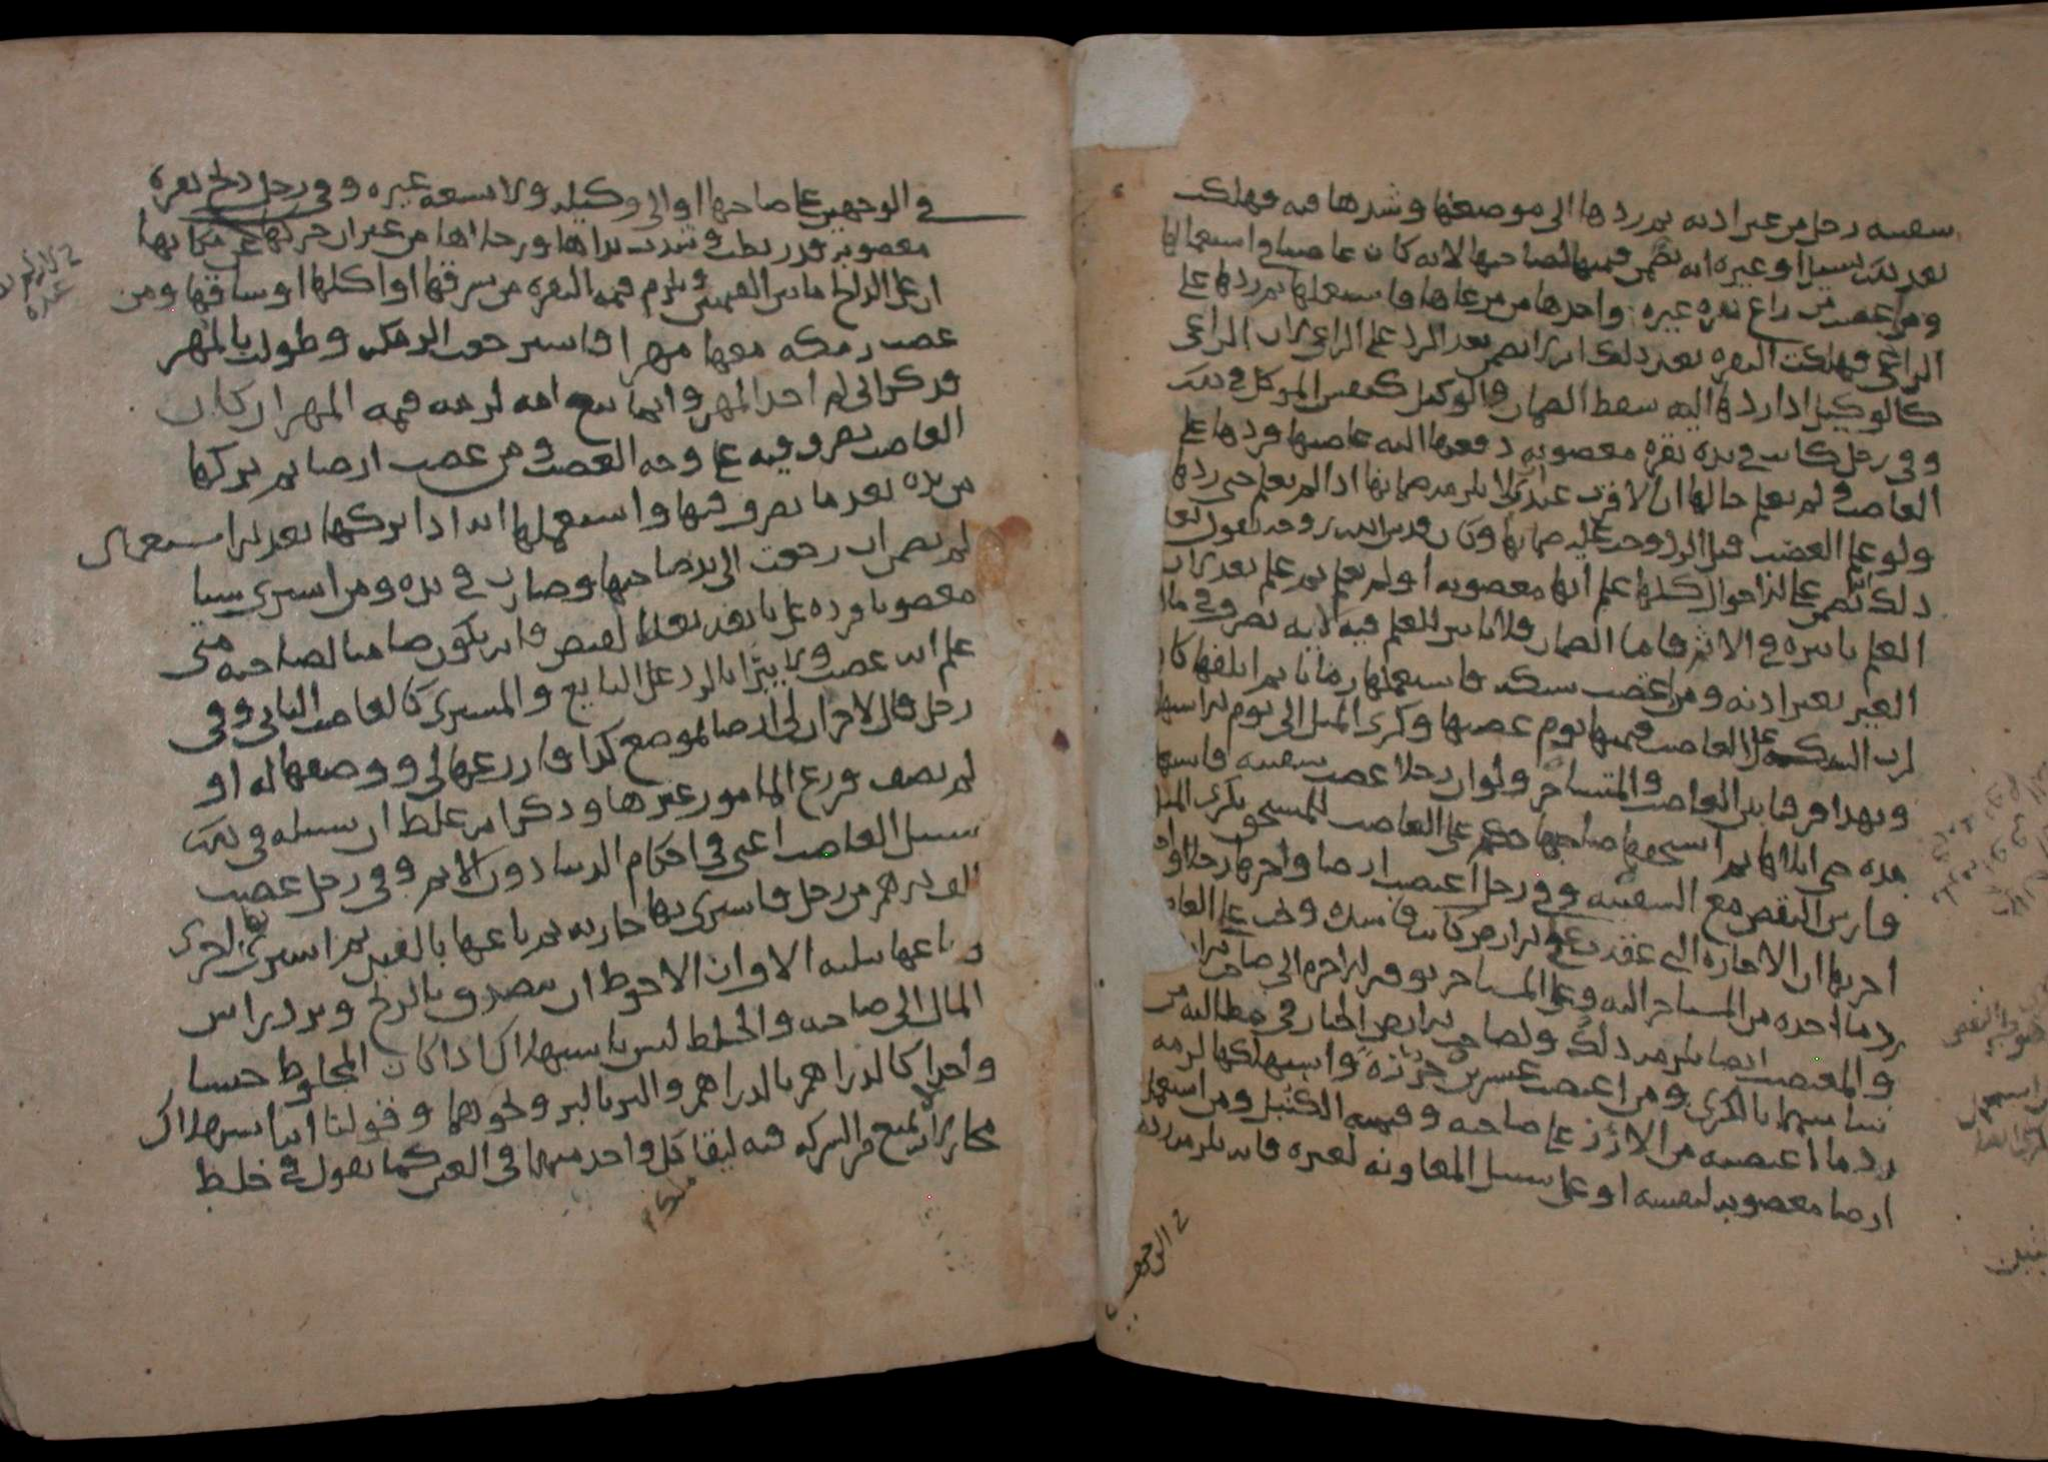 سفينه رجل من غير اذنه ثم ردها الى موضعها وشدها فيه فهلكت
بعد ذلك بسيل او غيره انه يضمن قيمتها لصاحبها لانه كان غاصبا في استعمالها
ومن اغتصب من راع بقره غيره واخذها من مرعاها فاستعملها ثم ردها على
الراعى فهلكت البقره بعد ذلك انه لا يضمن بعد الرد على الراعى لان الراعى
كالوكيل اذا ردها اليه سقط الضمان والوكيل كنفس الموكل في ذلك
وفي رجل كانت في يده بقره مغصوبه دفعها اليه غاصبها فردها على
الغاصب ولم يعلم حالها ان الاقرب عندى لا يلزمه ضمانها اذا لم يعلم حتى ردها
ولو علم الغصب قبل الرد وجب عليه ضمانها وكان قدس الله روحه يقول
ذلك يضمن على الاحوال كلها علم انها مغصوبه او لم يعلم ثم علم بعد لان
العلم تاثيره في الاثم فاما الضمان فلا تاثير للعلم فيه لانه تصرف في مال
الغير بغير اذنه ومن اغتصب سكه فاستعملها زمانا ثم اتلفها كان
لرب السكه على الغاصب قيمتها يوم غصبها وكرى المثل الى يوم استهلا
وبهذا فرقنا بين الغاصب والمستاجر ولو ان رجلا غصب سفينه فاستعملها
مده حتى ابلاها ثم استحقها صاحبها حكم على الغاصب للمستحق بكرى المثل
وارش النقص مع السفينه وفي رجل اغتصب ارضا واجرها رجلا
اجرتها ان الاجاره التى عقدت على الارض كانت فاسده وجب على الغاصب
رد ما اخذه من المستاجر اليه وعلى المستاجر توفير الاجره الى صاحب الارض
والمغتصب ايضا يلزمه ذلك ولصاحب الارض الخيار في مطالبه من
شا منهما بالكرى ومن اغتصب عشرين جرزة واستهلكها لزمه
رد ما اغتصبه من الارز على صاحبه وقيمه ومن استعمل
ارضا مغصوبه لنفسه او على سبيل المعاونه لغيره فانه يلزمه رده
في الوجهين
في الوجهين على صاحبها او الى وكيله ولا يسعه غيره وفي رجل ذبح بقره
مغصوبه قد ربطت وشدت يداها ورجلاها من غير ان حركها عن مكانها
ان على الذابح ما بين القيمتين ويلزم قيمه البقره من سرقها او اكلها او ساقها ومن
غصب رمكه معها مهرا فاسترجعت الرمكه وطولب بالمهر
فذكر انى لم اخذ المهر وانما تبع امه لزمه قيمه المهر ان كان
الغاصب تصرف فيه على وجه الغصب ومن غصب ارضا ثم تركها
من يده بعد ما تصرف فيها واستعملها انه اذا تركها بعد الاستعمال
لم يضمن ان رجعت الى يد صاحبها وصارت في يده ومن اشترى شيا
مغصوبا فرده على بايعه بعد القبض فانه يكون ضامنا لصاحبه متى
علم انه غصب ولا يبرا بالرد على البايع والمشترى كالغاصب الثانى وفي
رجل قال لاخر ان لى ارضا بموضع كذا فازرعها لى ووصفها له او
لم يصف فزرع المامور غيرها وذكر انه غلط ان سبيله في ذلك
سبيل الغاصب اعنى في احكام الدنيا دون الاثم وفي رجل غصب
الف درهم من رجل فاشترى بها جاريه ثم باعها بالفين ثم اشترى بها اخرى
وباعها بثلثه الاف ان الاحوط ان يتصدق بالربح ويرد راس
المال الى صاحبه والخلط ليس باستهلاك اذا كان المخلوط جنسا
واحدا كالدراهم بالدراهم والبر بالبر ونحوهما وقولنا انه استهلاك
مجاز لانه يمنع من الشركه فيه لبقا كل واحد منهما في العين كما نقول في خلط